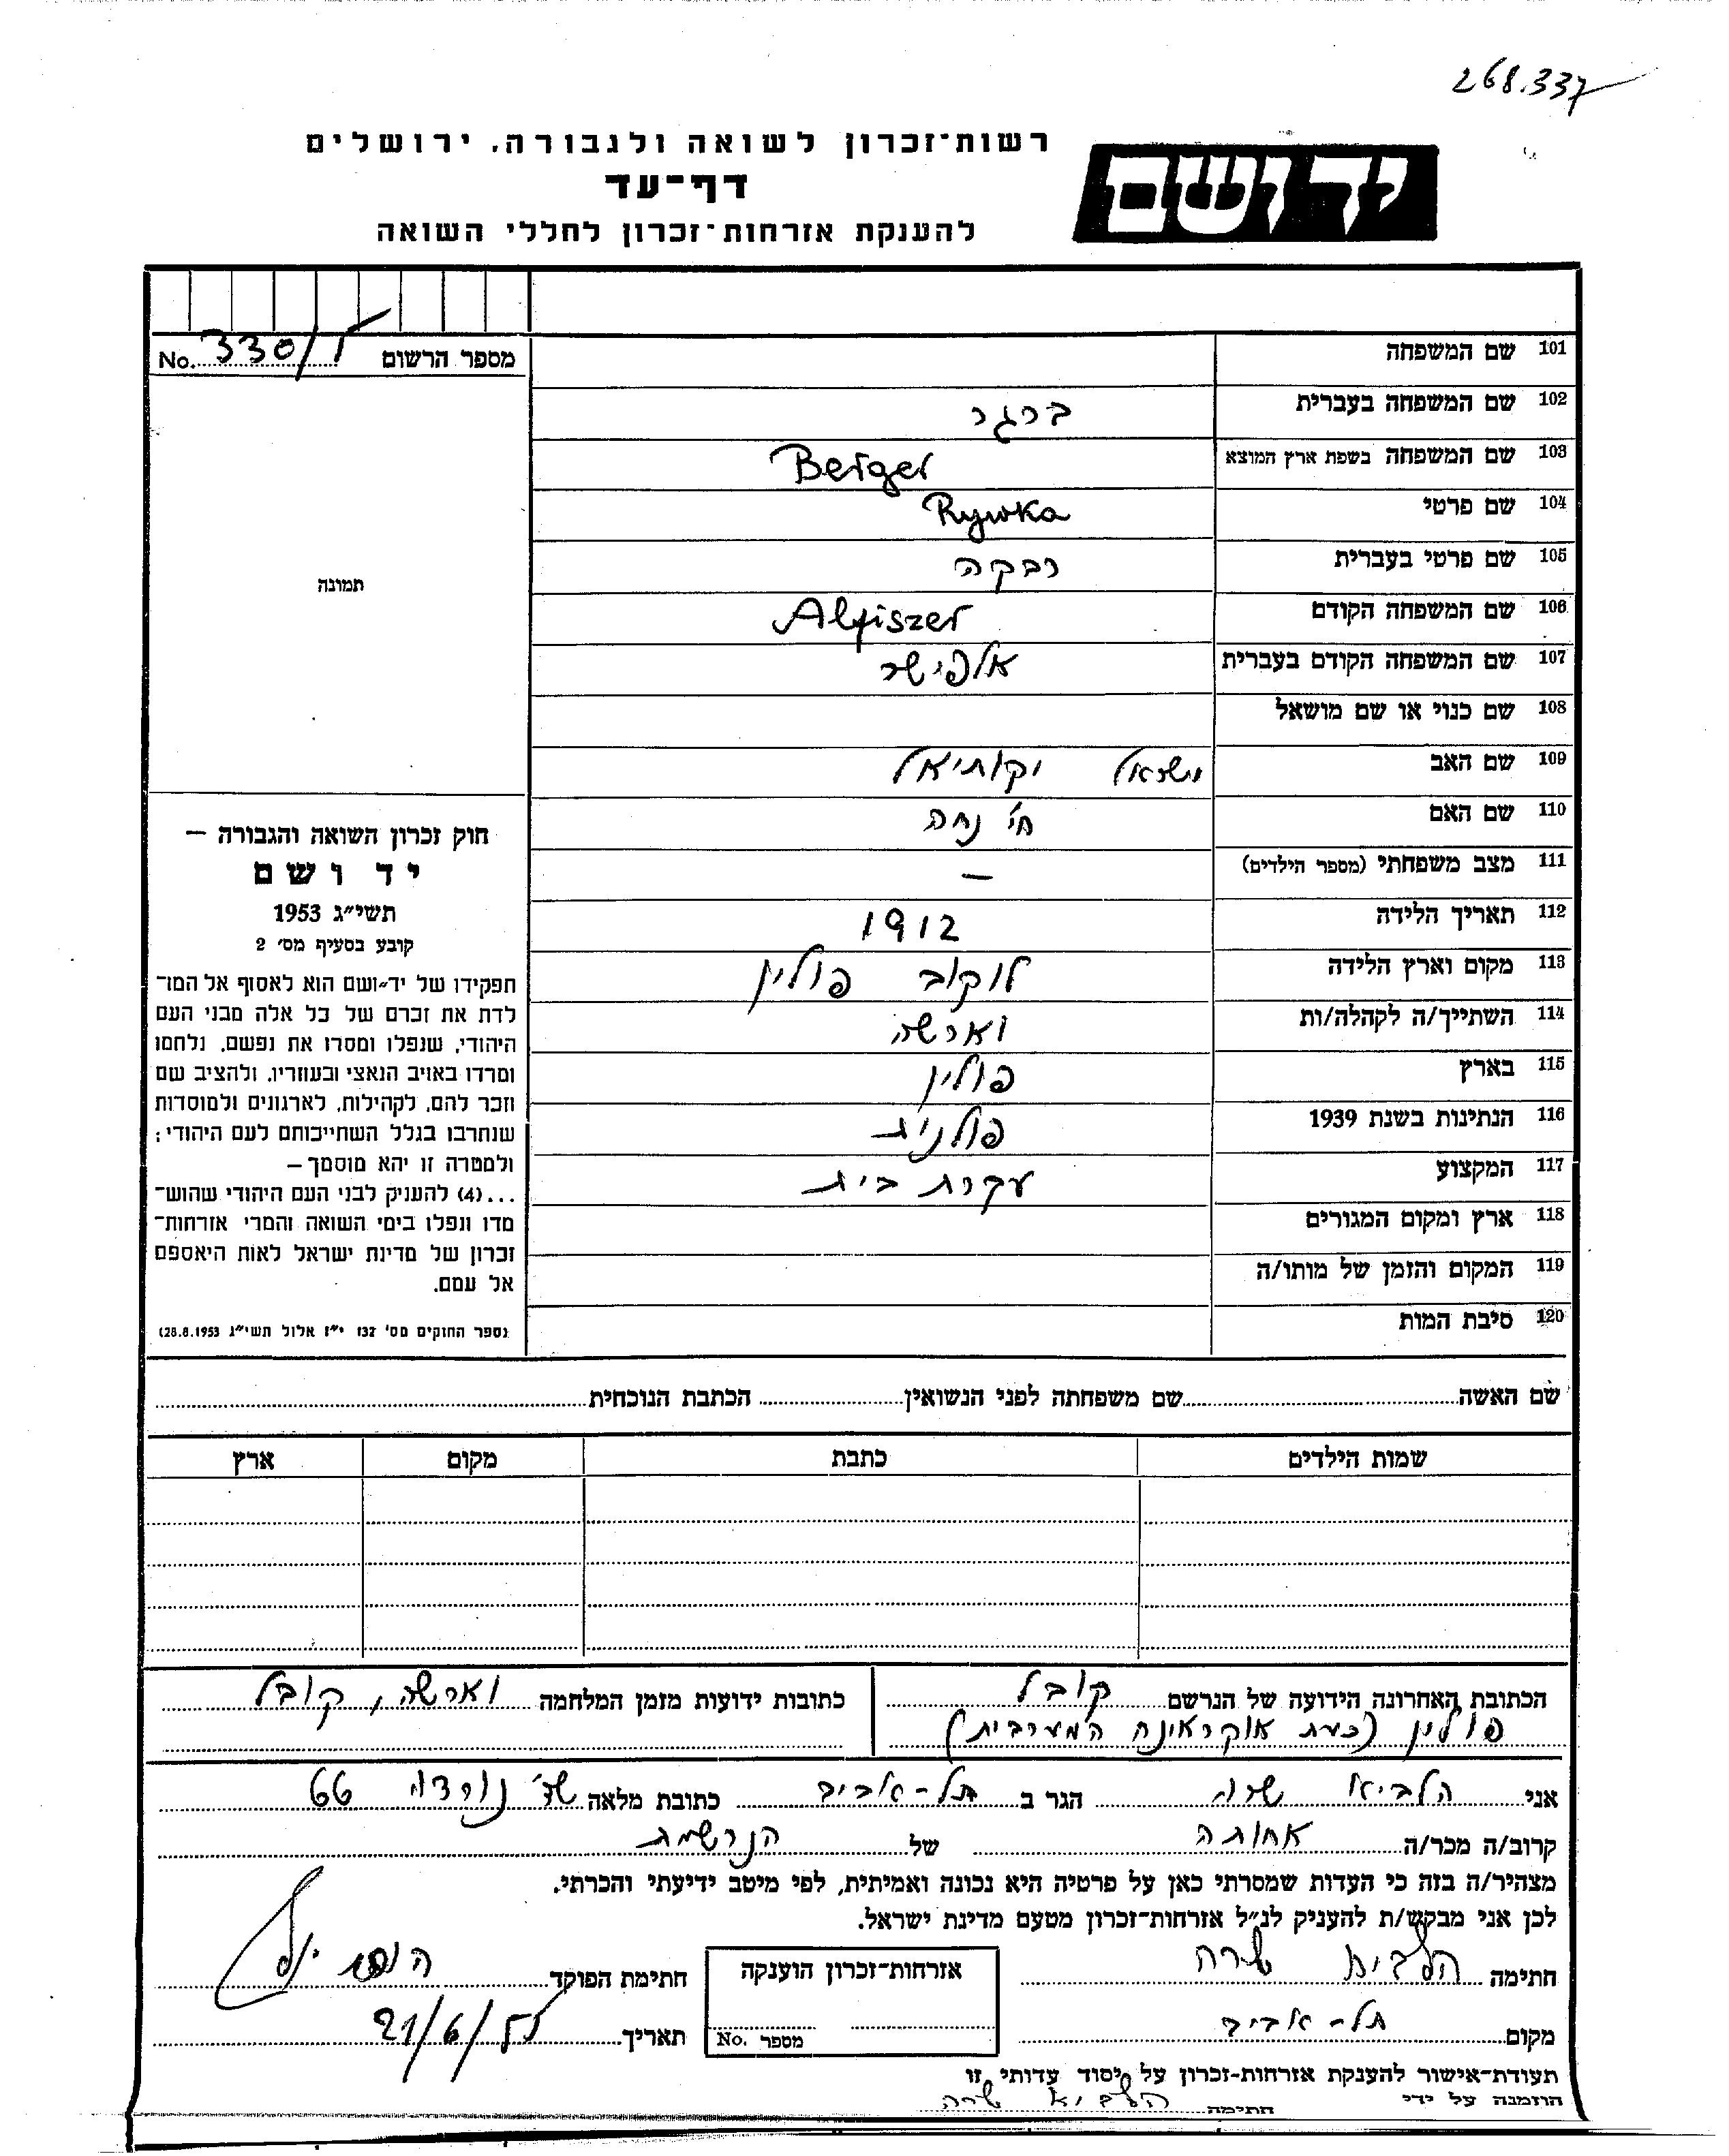 268.337
רשות־זכרון לשואה ולגבורה, ירושלים
יד ושם
דף־עד
להענקת אזרחות־זכרון לחללי השואה
מספר הרשום No. 330/1
תמונה
101 שם המשפחה
102 שם המשפחה בעברית ברגר
103 שם המשפחה בשפת ארץ המוצא Berger
104 שם פרטי Rywka
105 שם פרטי בעברית רבקה
106 שם המשפחה הקודם Alfiszer
107 שם המשפחה הקודם בעברית אלפישר
108 שם כנוי או שם מושאל
109 שם האב ישראל יקותיאל
110 שם האם חי' נחה
111 מצב משפחתי (מספר הילדים) —
112 תאריך הלידה 1912
113 מקום וארץ הלידה לוקוב פולין
114 השתייך/ה לקהלה/ות וארשה
115 בארץ פולין
116 הנתינות בשנת 1939 פולנית
117 המקצוע עקרת בית
118 ארץ ומקום המגורים
119 המקום והזמן של מותו/ה
120 סיבת המות
חוק זכרון השואה והגבורה —
יד ושם
תשי״ג 1953
קובע בסעיף מס׳ 2
תפקידו של יד־ושם הוא לאסוף אל המו־
לדת את זכרם של כל אלה מבני העם
היהודי, שנפלו ומסרו את נפשם, נלחמו
ומרדו באויב הנאצי ובעוזריו, ולהציב שם
וזכר להם, לקהילות, לארגונים ולמוסדות
שנחרבו בגלל השתייכותם לעם היהודי;
ולמטרה זו יהא מוסמך —
...(4) להעניק לבני העם היהודי שהוש־
מדו ונפלו בימי השואה והמרי אזרחות־
זכרון של מדינת ישראל לאות היאספם
אל עמם.
(ספר החוקים מס׳ 132 י״ז אלול תשי״ג 28.8.1953)
שם האשה שם משפחתה לפני הנשואין הכתבת הנוכחית
שמות הילדים כתבת מקום ארץ
הכתובת האחרונה הידועה של הנרשם קובל
פולין (כעת אוקראינה המערבית)
כתובות ידועות מזמן המלחמה וארשה, קובל
אני הלביא שרה הגר ב תל-אביב כתובת מלאה שד' נורדוי 66
קרוב/ה מכר/ה אחותה של הנרשמת
מצהיר/ה בזה כי העדות שמסרתי כאן על פרטיה היא נכונה ואמיתית, לפי מיטב ידיעתי והכרתי.
לכן אני מבקש/ת להעניק לנ״ל אזרחות־זכרון מטעם מדינת ישראל.
חתימה הלביא שרה
אזרחות־זכרון הוענקה
מספר No.
חתימת הפוקד
מקום תל-אביב
תאריך 21/6/55
תעודת־אישור להענקת אזרחות־זכרון על יסוד עדותי זו
הוזמנה על ידי חתימה הלביא שרה